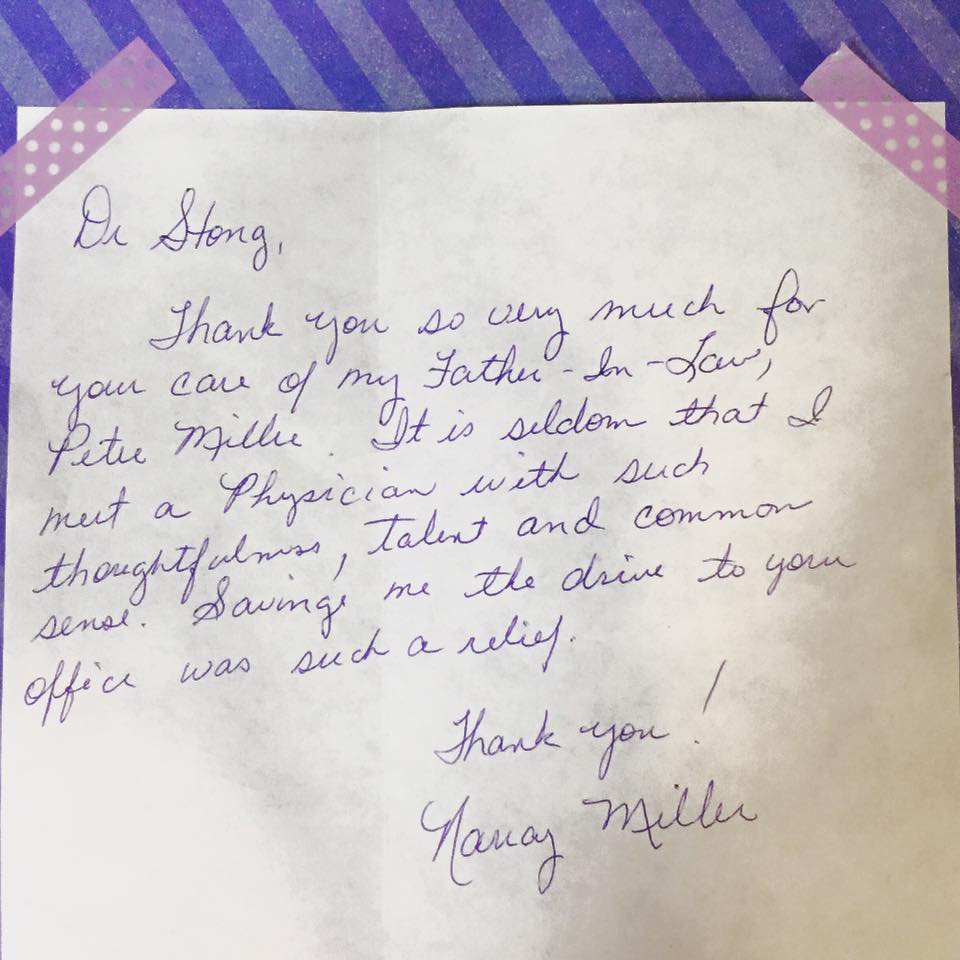 Dr Stong,
Thank you so very much for
your care of my Father-In-Law,
Peter Miller. It is seldom that I
meet a Physician with such
thoughtfulness, talent and common
sense. Savings me the drive to your
office was such a relief.
Thank you!
Nancy Miller